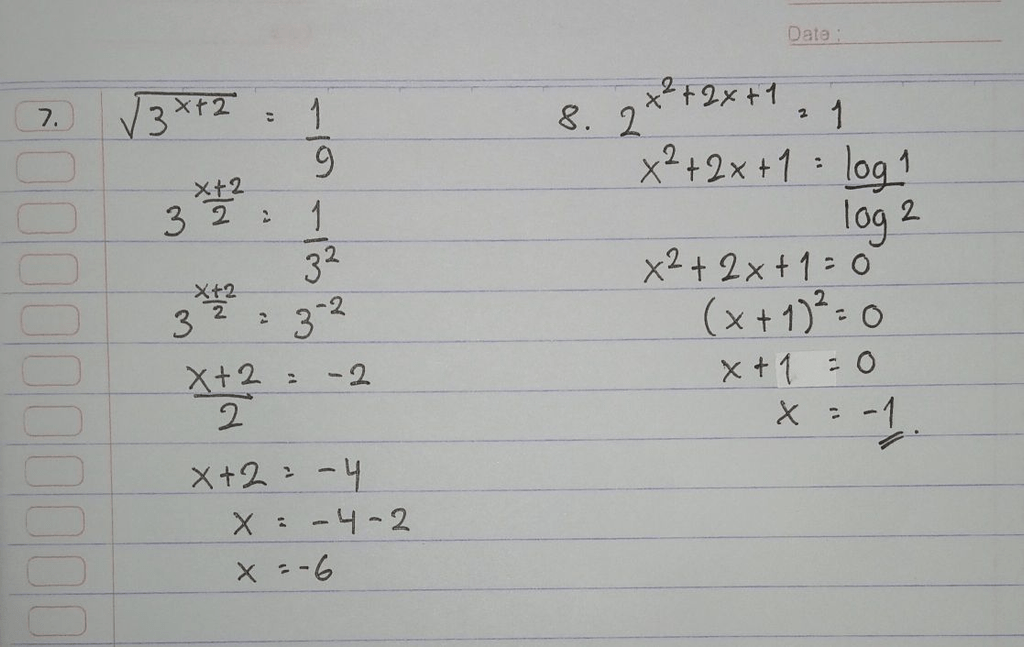 Date :
7. √3^(x+2) = 1/9
3^((x+2)/2) = 1/3^2
3^((x+2)/2) = 3^-2
(x+2)/2 = -2
x+2 = -4
x = -4-2
x = -6
8. 2^(x^2+2x+1) = 1
x^2+2x+1 = log 1/log 2
x^2+2x+1 = 0
(x+1)^2 = 0
x+1 = 0
x = -1.